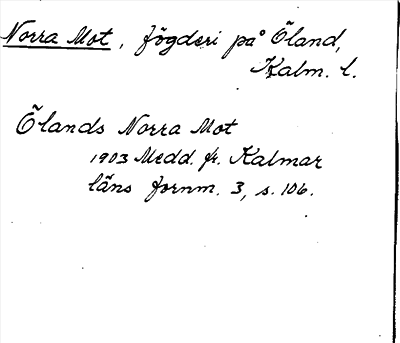 Norra Mot, fögderi på Öland,
Kalm. l.
Ölands Norra Mot
1903 Medd. fr. Kalmar
läns fornm. 3, s. 106.